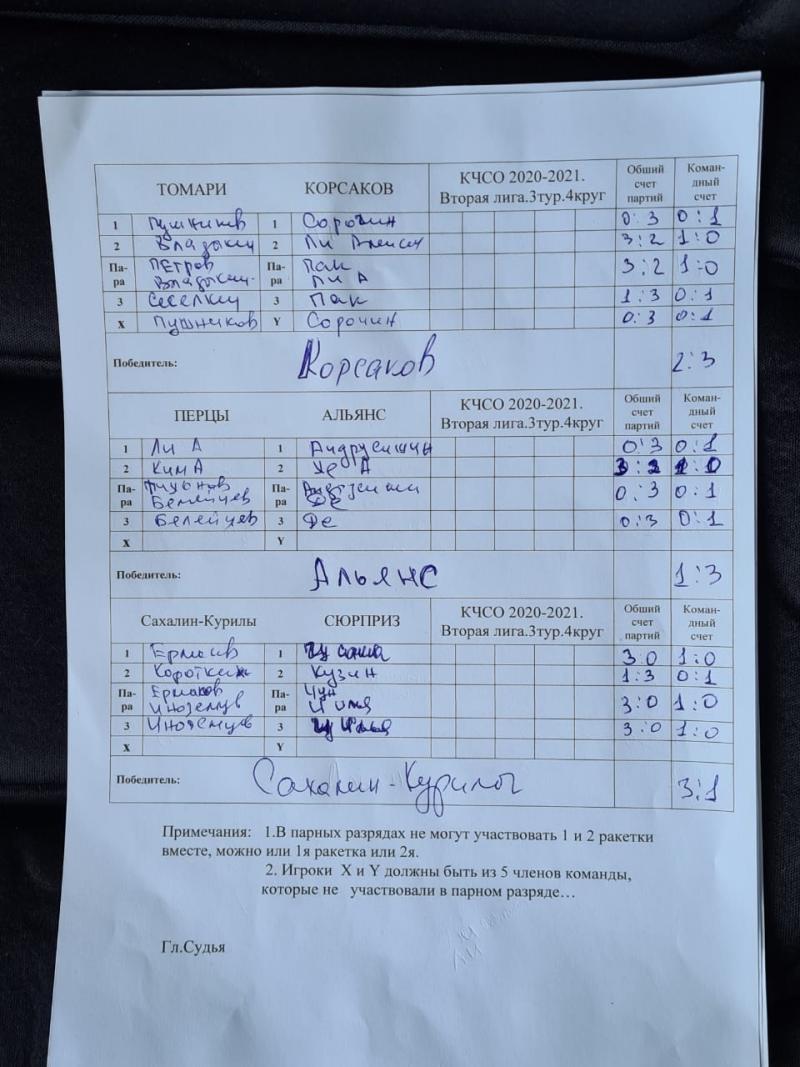 ТОМАРИ КОРСАКОВ КЧСО 2020-2021. Вторая лига.3тур.4круг Обший счет партий Коман-дный счет
1 1 Сорочин 0:3 0:1
2 Владыкин 2 Ли Алексей 3:2 1:0
Па-ра Петров Владыкин Па-ра Пак Ли А 3:2 1:0
3 3 Пак 1:3 0:1
X Пушников Y Сорочин 0:3 0:1
Победитель: Корсаков 2:3
ПЕРЦЫ АЛЬЯНС КЧСО 2020-2021. Вторая лига.3тур.4круг Обший счет партий Коман-дный счет
1 Ли А 1 Андрусишин 0:3 0:1
2 Ким А 2 3:2 1:0
Па-ра Белейцев Па-ра Де 0:3 0:1
3 Белейцев 3 Де 0:3 0:1
X Y
Победитель: Альянс 1:3
Сахалин-Курилы СЮРПРИЗ КЧСО 2020-2021. Вторая лига.3тур.4круг Обший счет партий Коман-дный счет
1 1 3:0 1:0
2 2 Кузин 1:3 0:1
Па-ра Ермаков Иноземцев Па-ра Чун 3:0 1:0
3 Иноземцев 3 3:0 1:0
X Y
Победитель: Сахалин-Курилы 3:1
Примечания: 1.В парных разрядах не могут участвовать 1 и 2 ракетки
вместе, можно или 1я ракетка или 2я.
2. Игроки X и Y должны быть из 5 членов команды,
которые не участвовали в парном разряде…
Гл.Судья